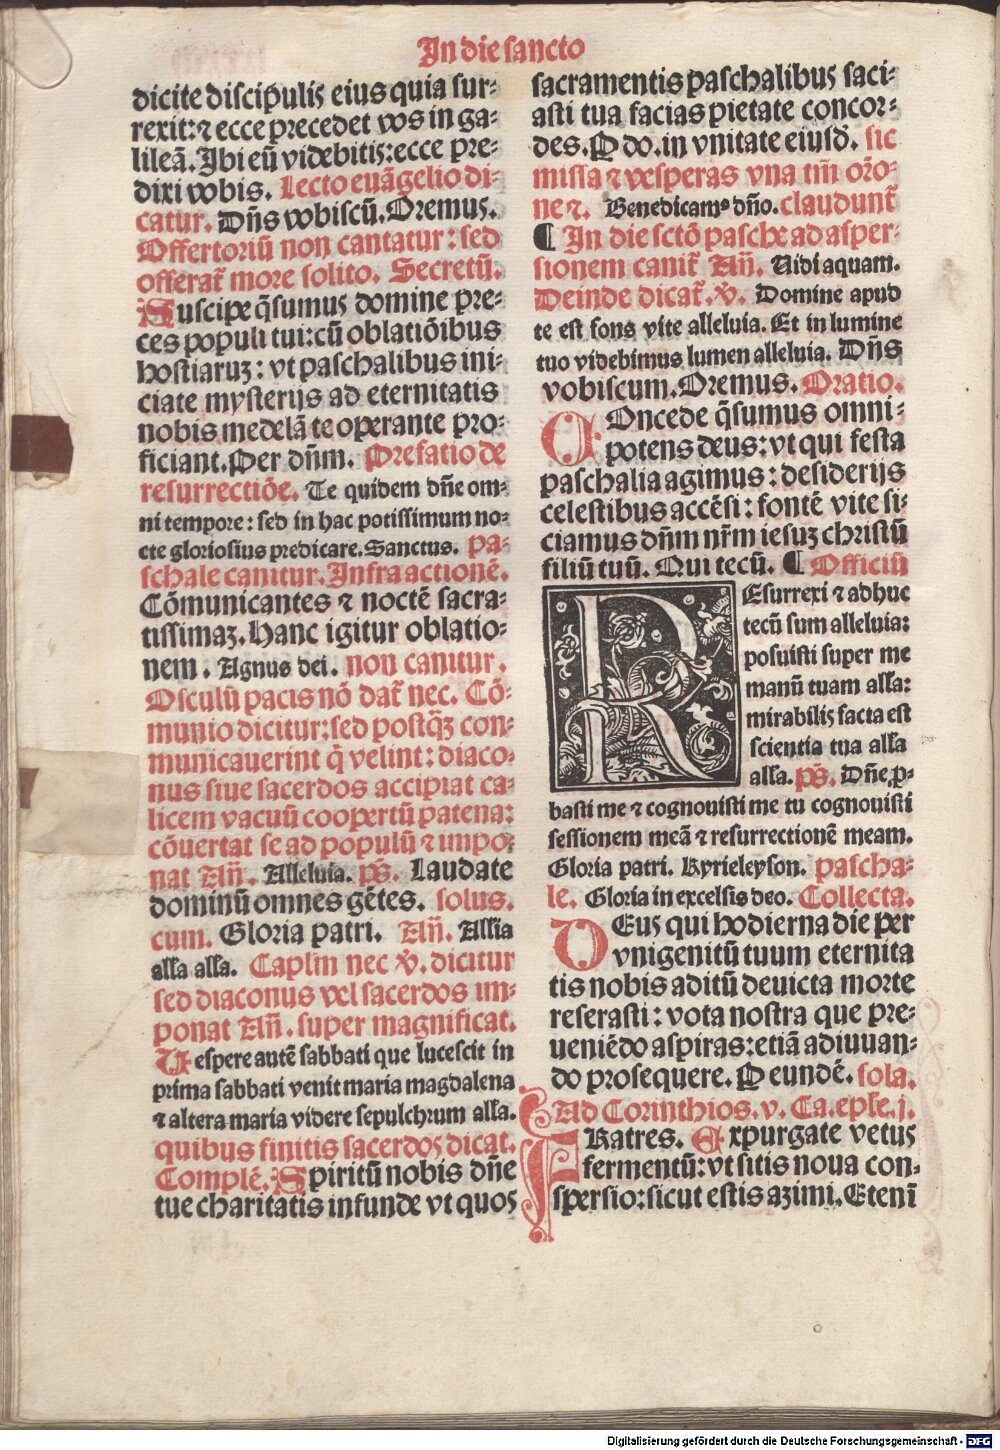 In die sancto
dicite discipulis eius quia sur⸗
rexit: ⁊ ecce precedet vos in ga⸗
lileā. Ibi eū videbitis: ecce pre⸗
dixi vobis. Lecto euāgelio di⸗
catur. Dn̄s vobiscū. Oremus.
Offertoriū non cantatur: sed
offerat᷑ more solito. Secretū.
Suscipe q̄sumus domine pre⸗
ces populi tui: cū oblatiōibus
hostiaruꝫ: vt paschalibus ini⸗
ciate mysterijs ad eternitatis
nobis medelā te operante pro⸗
ficiant. Per dn̄m. Prefatio de
resurrectiōe. Te quidem dn̄e om⸗
ni tempore: sed in hac potissimum no⸗
cte gloriosius predicare. Sanctus. pa⸗
schale canitur. Infra actionē.
Cōmunicantes ⁊ noctē sacra⸗
tissimaꝫ. Hanc igitur oblatio⸗
nem. Agnus dei. non canitur.
Osculū pacis nō dat᷑ nec. Cō⸗
munio dicitur: sed postq̄ꝫ con⸗
municauerint q̄ velint: diaco⸗
nus siue sacerdos accipiat ca⸗
licem vacuū coopertū patena:
cōuertat se ad populū ⁊ impo⸗
nat An̄. Alleluia. ps̄. Laudate
dominū omnes gētes. solus.
cum. Gloria patri. An̄. Allia
alla alla. Caplm nec v̄. dicitur
sed diaconus vel sacerdos im⸗
ponat An̄. super magnificat.
Uespere autē sabbati que lucescit in
prima sabbati venit maria magdalena
⁊ altera maria videre sepulchrum alla.
quibus finitis sacerdos dicat.
Complē. Spiritū nobis dn̄e
tue charitatis infunde vt quos
sacramentis paschalibus saci⸗
asti tua facias pietate concor⸗
des. P do. in vnitate eiusd̄. sic
missa ⁊ vesperas vna tm̄ orō⸗
ne ⁊. Benedicamꝰ dn̄o. claudunt᷑
¶ In die sctō pasche ad asper⸗
sionem canit᷑ An̄. Uidi aquam.
Deinde dicat᷑. v̄. Domine apud
te est fons vite alleluia. Et in lumine
tuo videbimus lumen alleluia. Dn̄s
vobiscum. Oremus. Oratio.
COncede q̄sumus omni⸗
potens deus: vt qui festa
paschalia agimus: desiderijs
celestibus accēsi: fontē vite si⸗
ciamus dn̄m nr̄m iesuꝫ christū
filiū tuū. Qui tecū. ¶ Officiū
REsurrexi ⁊ adhuc
tecū sum alleluia:
posuisti super me
manū tuam alla:
mirabilis facta est
scientia tua alla
alla. ps̄. Dn̄e ꝓ⸗
basti me ⁊ cognouisti me tu cognouisti
sessionem meā ⁊ resurrectionē meam.
Gloria patri. Kyrieleyson. pascha⸗
le. Gloria in excelsis deo. Collecta.
DEus qui hodierna die per
vnigenitū tuum eternita
tis nobis aditū deuicta morte
reserasti: vota nostra que pre⸗
ueniēdo aspiras: etiā adiuuan⸗
do prosequere. P eundē. sola.
Ad Corinthios. v. Ca. eple. j.
FRatres. Expurgate vetus
fermentū: vt sitis noua con⸗
spersio: sicut estis azimi. Eteni̅
Digitalisierung gefördert durch die Deutsche Forschungsgemeinschaft - DFG